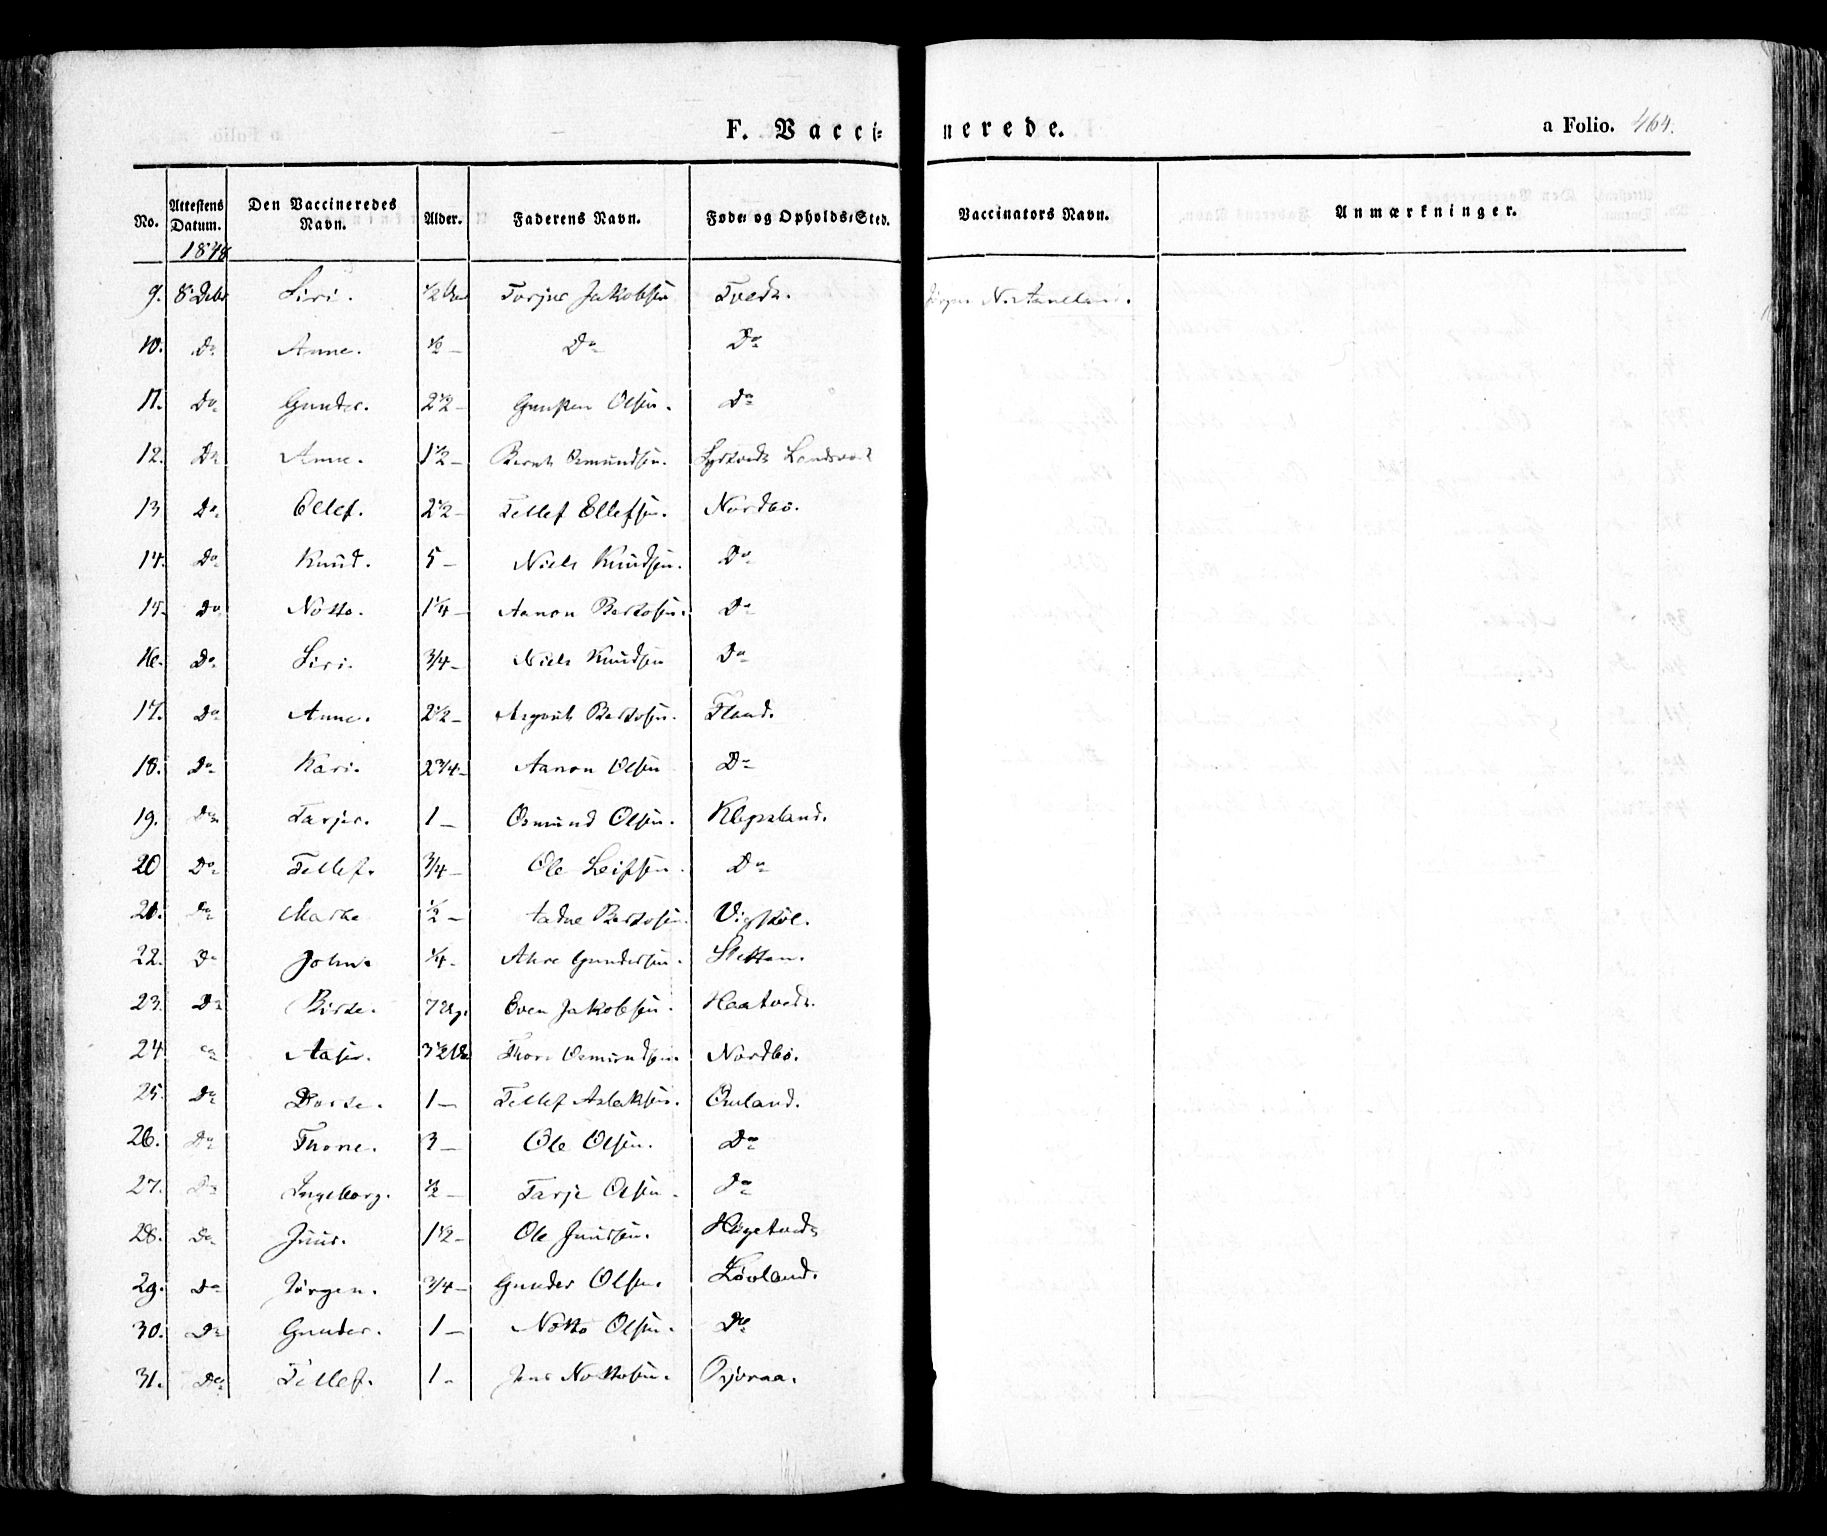 F. Vacci-
nerede.
a Folio. 464.
No. Attestens Datum. Den Vaccineredes Navn. Alder. Faderens Navn. Føde- og Opholds-Sted. Vaccinators Navn. Anmærkninger.
1848
9. 8 Debr Siri. 1/2 Aar Torjus Jakobsen Tvedt.
10. Do Anne. 1/2 – Do Do
11. Do Gunder. 2 1/2 – Olsen. Do
12. Do Anne. 1 1/2 – Bernt Osmundsen.
13 Do Ellef. 2 1/2 – Tellef Ellefsen. Nordbö.
14. Do Knud. 5 – Niels Knudsen. Do
15. Do Notto. 1 1/4 – Aanon Bertosen. Do
16. Do Siri. 3/4 – Niels Knudsen Do
17. Do Anne. 2 1/2 – Bertosen. Fland.
18. Do Kari. 2 3/4 – Aanon Olsen Do
19. Do Tarjer. 1 – Osmund Olsen. Klepsland.
20 Do Tellef. 3/4 – Ole Leifsen. Do
21. Do Marte 1/2 – Aadne Bertosen. Vigstöl.
22. Do John. 1/4 – Gundersen. Sletten.
23. Do Birte. 7 Ug. Even Jakobsen. Haatvedt.
24 Do Aasir. 3 1/2 Aar Thore Osmundsen. Nordbö.
25. Do Dorte. 1 – Tellef Aslaksen. Omland.
26. Do Thone. 3 – Ole Olsen. Do
27. Do Ingeborg. 1/2 – Tarje Olsen. Do
28. Do Juus. 1 1/2 – Ole Juusen. Högetvedt
29. Do Jörgen. 3/4 – Gunder Olsen. Lövland.
30. Do Gunder. 1 – Notto Olsen. Do
31. Do Tellef. 1 – Jens Nottosen.